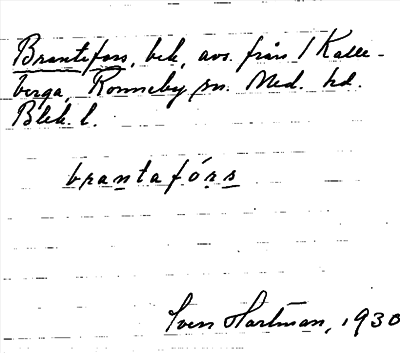 Brantefors, bek, avs. från 1 Kalle-
berga, Ronneby sn. Med. hd.
Blek. l.
brantafórs
Sven Hartman, 1930